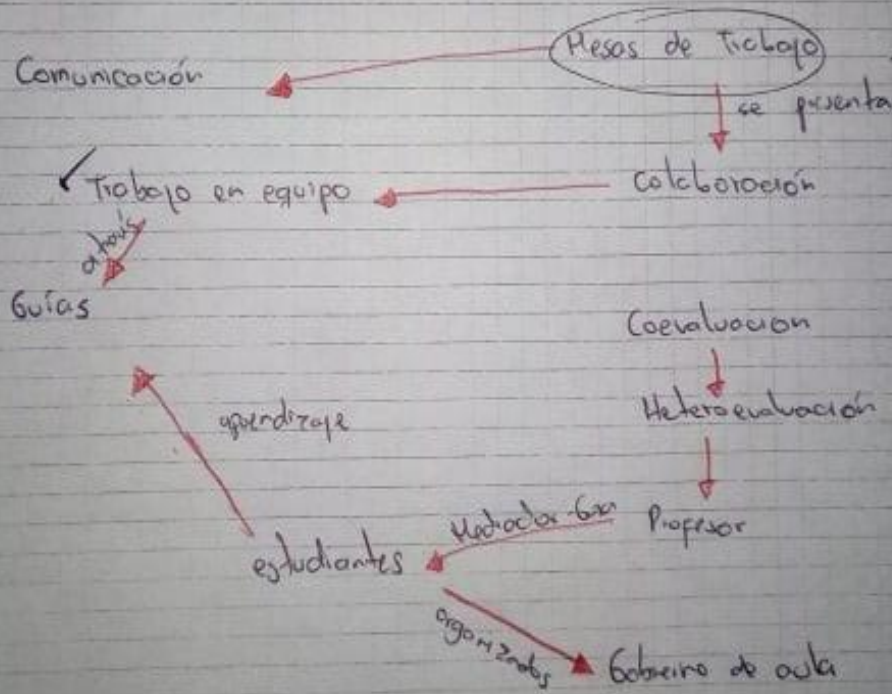 Mesas de Trabajo
Comunicación
se presenta
✓ Trabajo en equipo
Colaboración
através
Guías
Coevaluacion
Heteroevaluación
aprendizaje
Mediador-Guia
Profesor
estudiantes
organizados
Gobierno de aula